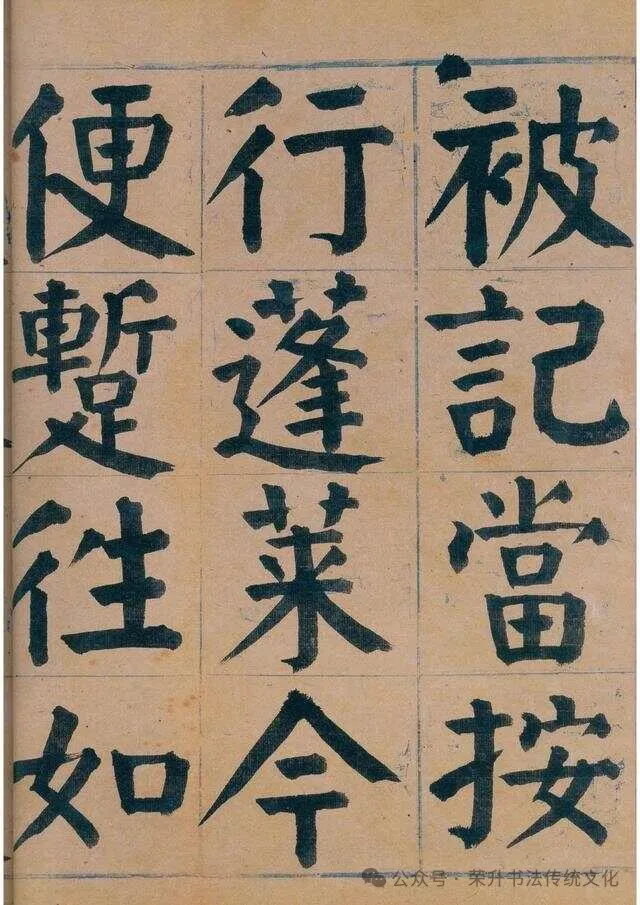 被記當按
行蓬萊今
便蹔往如
公众号·荣升书法传统文化